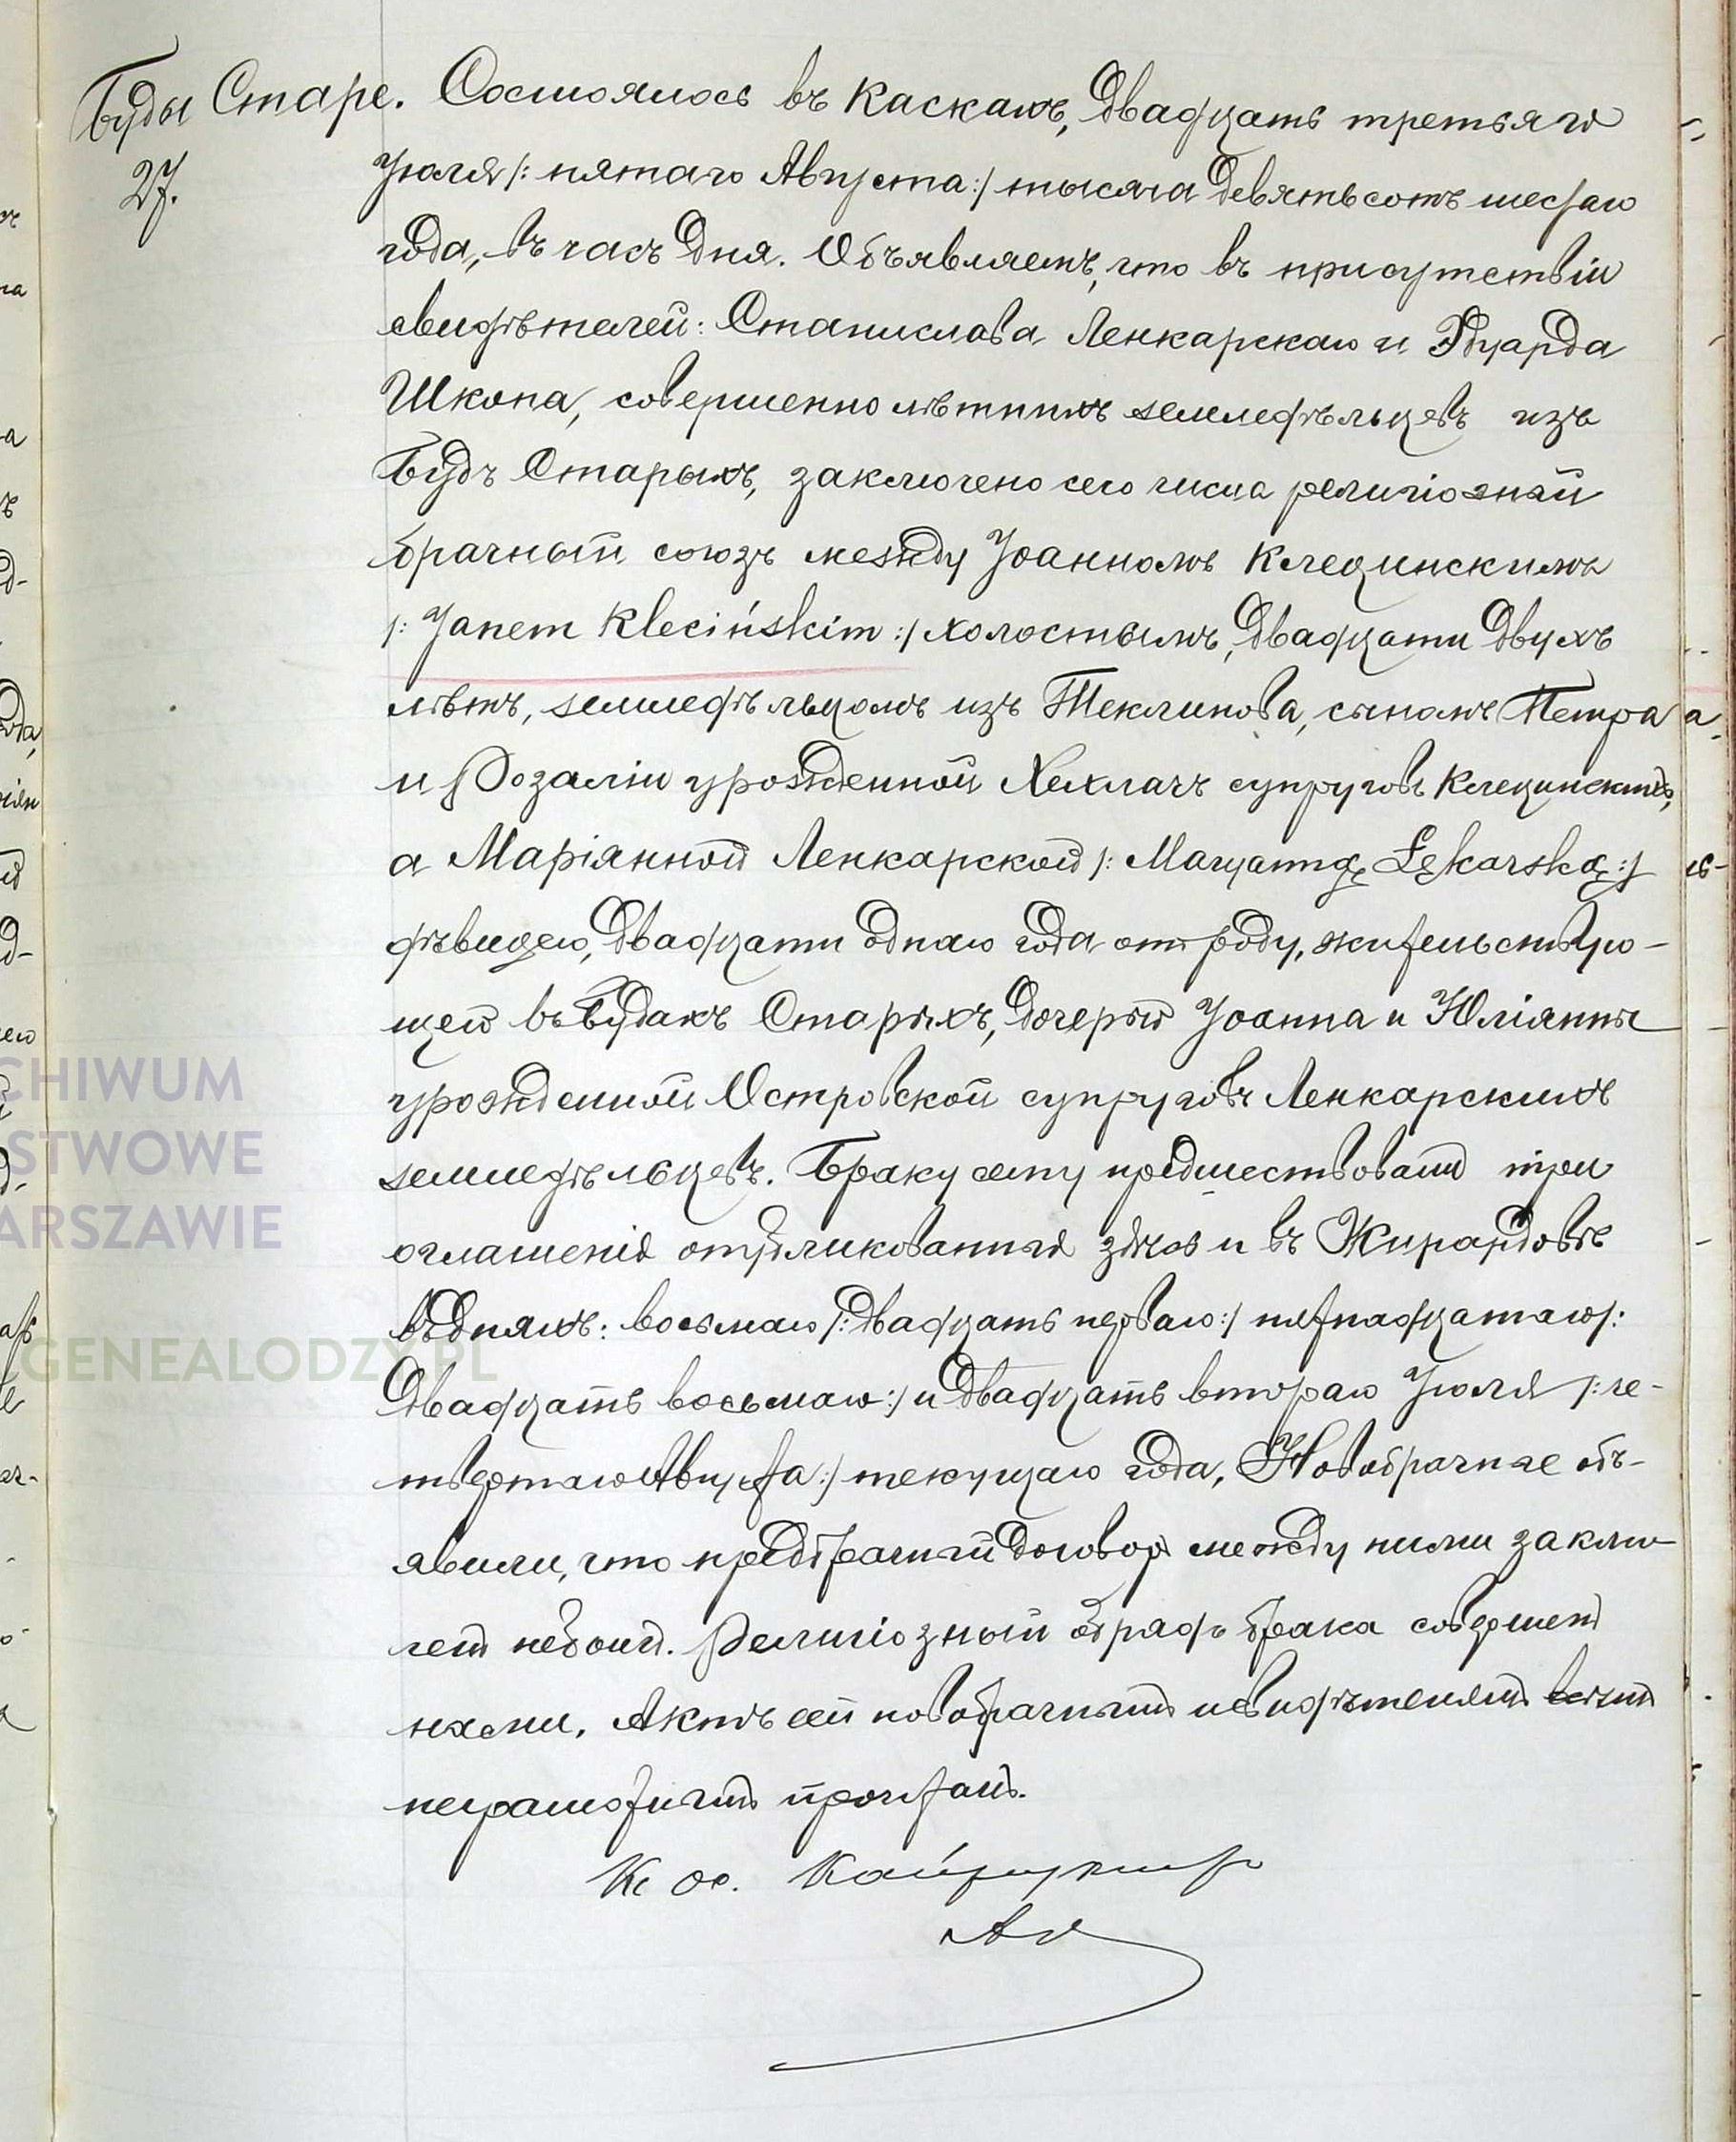 Буды Старе.
27.
Состоялось въ Каскахъ, двадцать третьяго
Іюля /: пятаго Августа :/ тысяча девятьсотъ шестаго
года, въ часъ дня. Объявляемъ, что въ присутствіи
свидѣтелей: Станислава Ленкарскаго и Эдуарда
Шкопа, совершеннолѣтнихъ земледѣльцевъ изъ
Будъ Старыхъ, заключено сего числа религіозный
брачный союзъ между Іоанномъ Клецинскимъ
/: Janem Klecińskim :/ холостымъ, двадцати двухъ
лѣтъ, земледѣльцомъ изъ Теклинова, сыномъ Петра
и Розаліи урожденной Хехлачъ супруговъ Клецинскихъ,
а Маріянной Ленкарской /: Maryanną Łękarską :/
дѣвицею, двадцати одного года отъ роду, жительствую-
щей въ Будахъ Старыхъ, дочерью Іоанна и Юліянны
урожденной Островской супруговъ Ленкарскихъ
земледѣльцевъ. Браку сему предшествовали три
оглашенія опубликованныя здѣсь и въ Жирардовѣ
въ дняхъ: восьмаго /: двадцать перваго :/ пятнадцатаго /:
двадцать восьмаго :/ и двадцать втораго Іюля /: че-
твертаго Августа :/ текущаго года, Новобрачные объ-
явили, что предбрачный договоръ между ними заклю-
ченъ небылъ. Религіозный обрядъ брака совершенъ
нами. Актъ сей новобрачнымъ и свидѣтелямъ
неграмотнымъ прочитанъ.
ARCHIWUM
PAŃSTWOWE
WARSZAWIE
GENEALODZY.PL